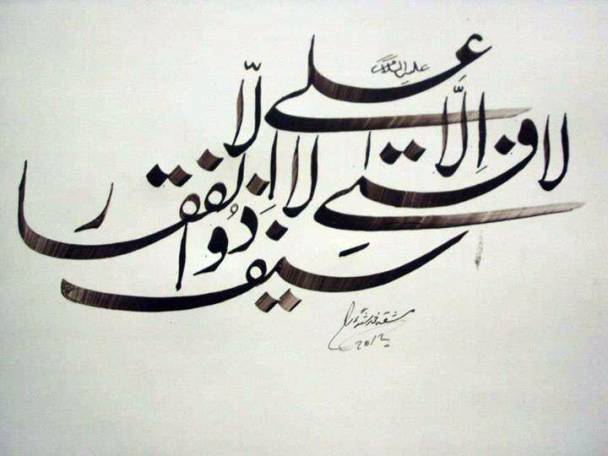 لا فتى الّا علی
علیه السلام
لا سیف الّا ذوالفقار